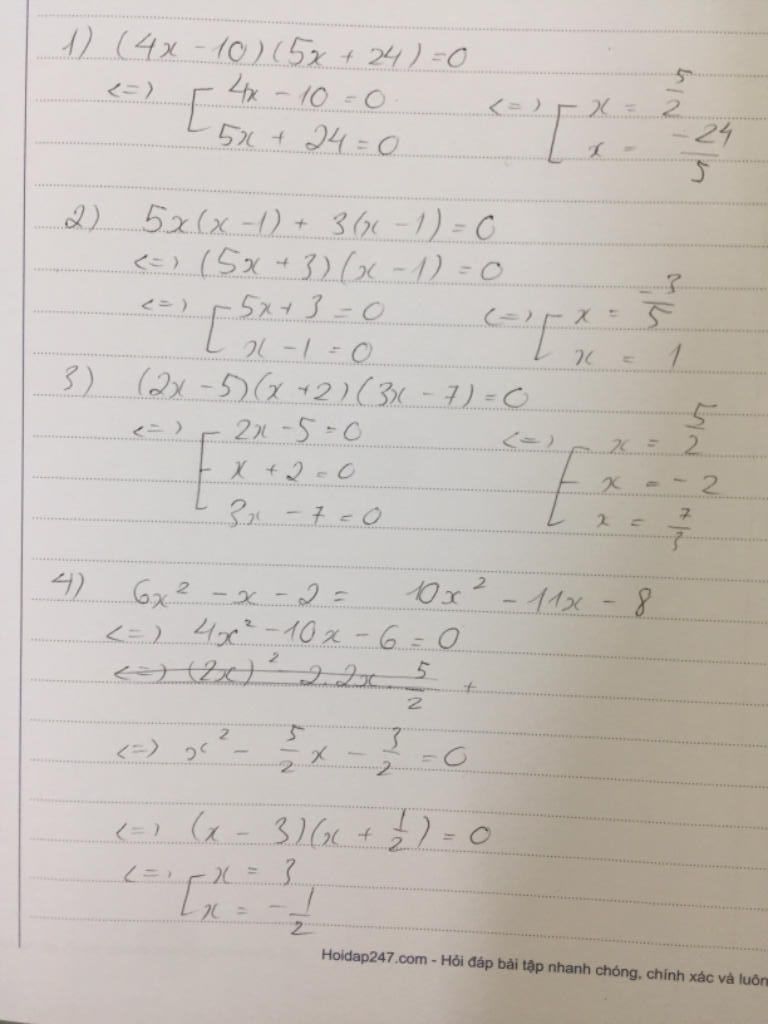 1) (4x - 10)(5x + 24) = 0
<=> [ 4x - 10 = 0 <=> [ x = 5/2
5x + 24 = 0 x = -24/5
2) 5x(x - 1) + 3(x - 1) = 0
<=> (5x + 3)(x - 1) = 0
<=> [ 5x + 3 = 0 <=> [ x = -3/5
x - 1 = 0 x = 1
3) (2x - 5)(x + 2)(3x - 7) = 0
<=> [ 2x - 5 = 0 <=> [ x = 5/2
x + 2 = 0 x = -2
3x - 7 = 0 x = 7/3
4) 6x² - x - 2 = 10x² - 11x - 8
<=> 4x² - 10x - 6 = 0
<=> (2x)² - 2.2x . 5/2 +
<=> x² - 5/2 x - 3/2 = 0
<=> (x - 3)(x + 1/2) = 0
<=> [ x = 3
x = -1/2
Hoidap247.com - Hỏi đáp bài tập nhanh chóng, chính xác và luôn